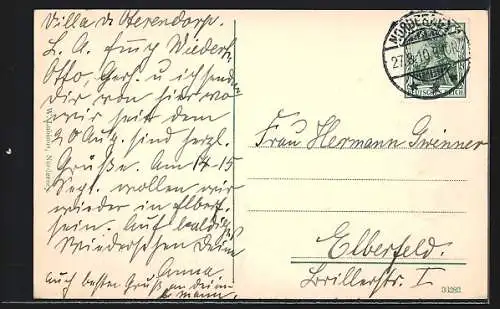 Villa de Oterendorp.
L. A. Emmy Wiederh.
Otto, Gerh. u ich senden
Dir von hier wo
wir seit dem
20 Aug. sind herzl.
Grüße. Am 14-15
Sept. wollen wir
wieder in Elberf.
sein. Auf baldiges
Wiedersehen Deine
Anna.
Auch besten Gruß an Deinen
Mann.
NORDERNEY
27.8.10.
DEUTSCHES REICH
Frau Hermann Gwinner
Elberfeld.
Brillerstr. I
31283